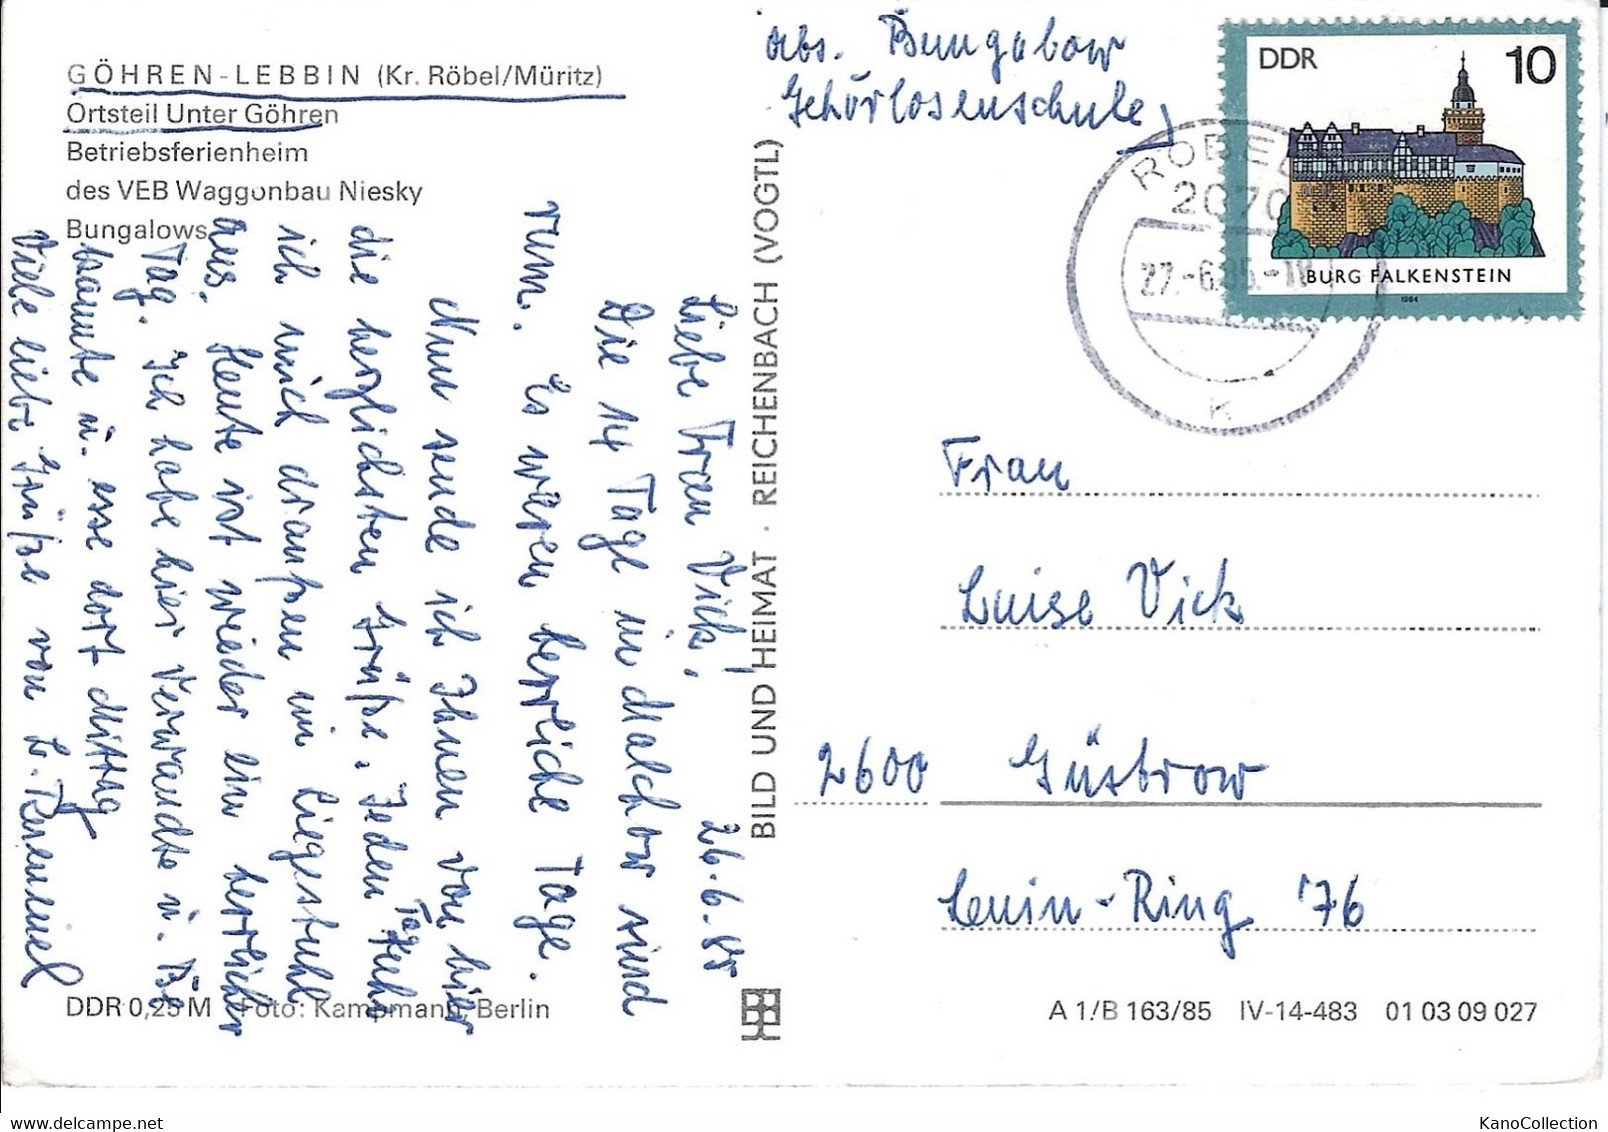 GÖHREN-LEBBIN (Kr. Röbel/Müritz)
Ortsteil Unter Göhren
Betriebsferienheim
des VEB Waggonbau Niesky
Bungalows
26.6.85
Liebe Frau Vick!
Die 14 Tage in Malchow sind
rum. Es waren herrliche Tage.
Nun sende ich Ihnen von hier
die herzlichsten Grüße. Jeden Tag
ich mich draußen im Liegestuhl
aus. Heute ist wieder ein herrlicher
Tag. Ich habe hier Verwandte u. Be
kannte u. esse dort Mittag
Viele liebe Grüße von
DDR 0,25 M Foto: Kampmann, Berlin
BILD UND HEIMAT · REICHENBACH (VOGTL)
Abs. Bungalow
Gehörlosenschule
DDR 10
BURG FALKENSTEIN
1984
RÖBEL
2070
27.-6.85.-18
K
Frau
Luise Vick
2600 Güstrow
Lenin-Ring 76
A 1/B 163/85 IV-14-483 01 03 09 027
KanoCollection